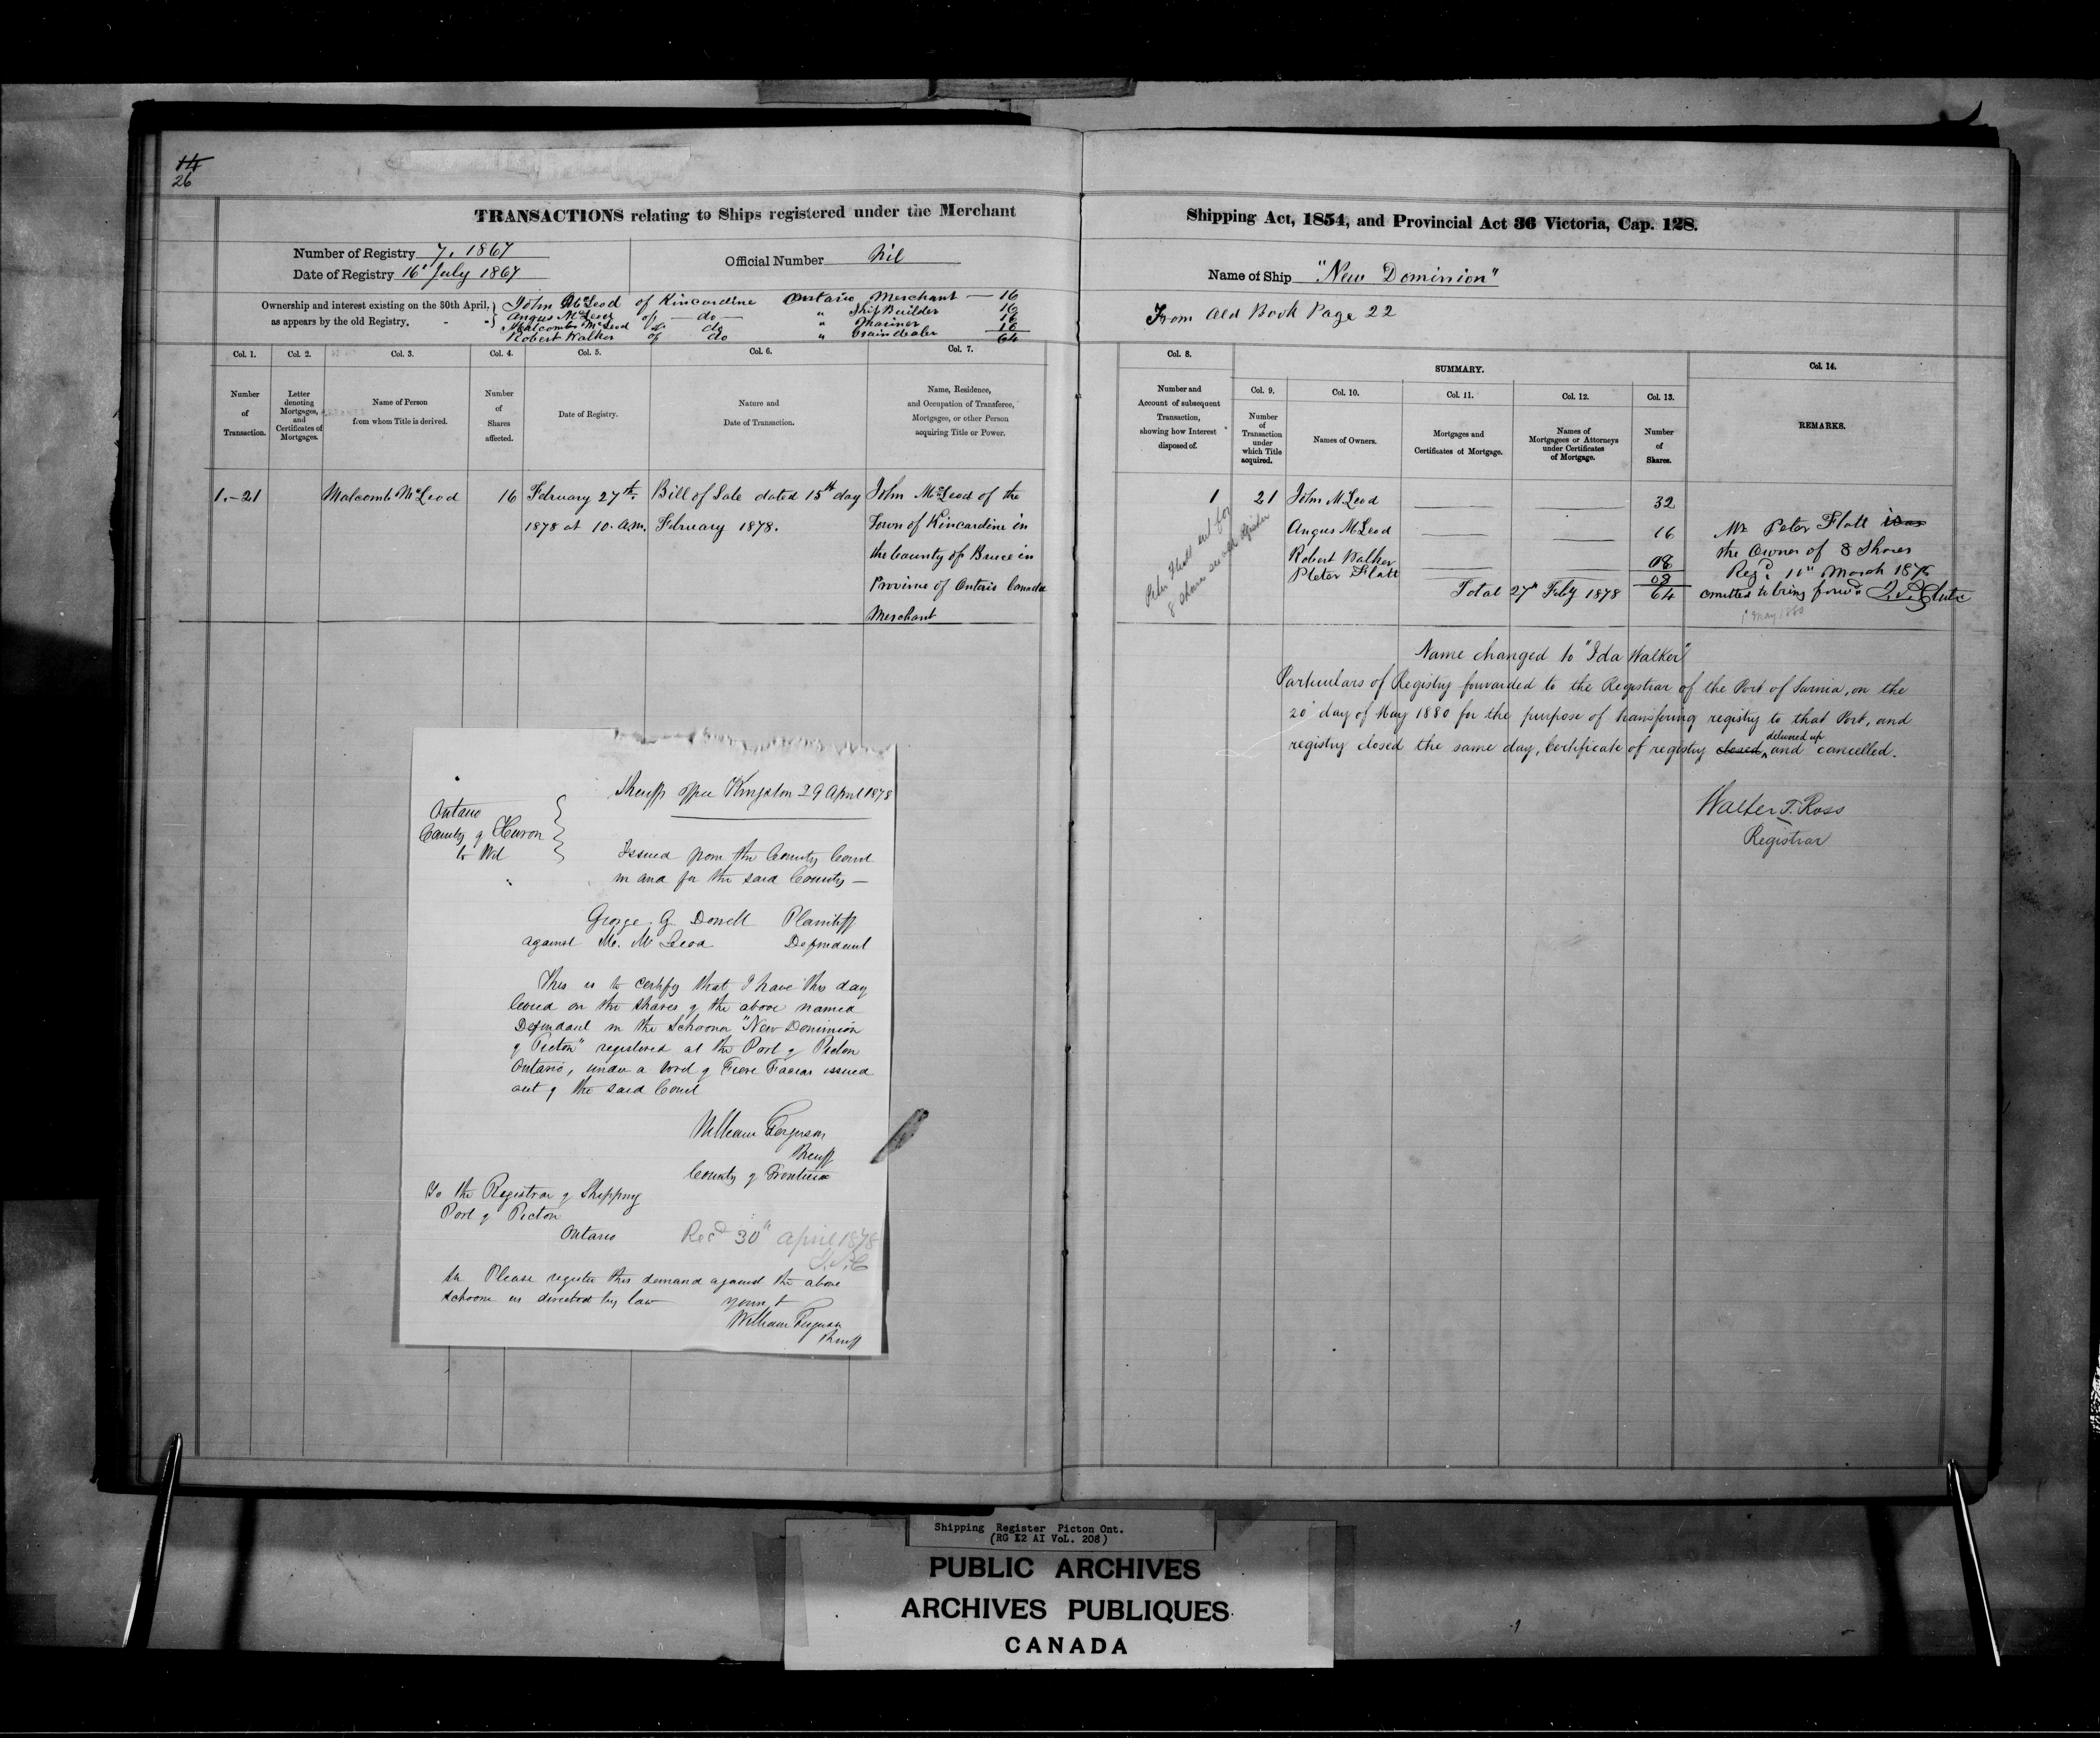 14
26
TRANSACTIONS relating to Ships registered under the Merchant
Number of Registry 7, 1867
Date of Registry 16' July 1867
Official Number Nil
Ownership and interest existing on the 30th April, as appears by the old Registry.
John McLeod of Kincardine Ontario Merchant — 16
Angus McLeod of — do — " Ship Builder 16
Malcomb McLeod do do " Mariner 16
Robert Walker of do " Grain dealer 16
64
Col. 1. Col. 2. Col. 3. Col. 4. Col. 5. Col. 6. Col. 7.
Number of Transaction.
Letter denoting Mortgages, and Certificates of Mortgages.
Name of Person from whom Title is derived.
Number of Shares affected.
Date of Registry.
Nature and Date of Transaction.
Name, Residence, and Occupation of Transferee, Mortgagee, or other Person acquiring Title or Power.
1.-21 Malcomb McLeod 16 February 27th. Bill of Sale dated 15th day John McLeod of the
1878 at 10. a.m. February 1878. Town of Kincardine in
the County of Bruce in
Province of Ontario Canada
Merchant
Sheriffs office Kingston 29 April 1878
Ontario
County of Huron
to Wit
Issued from the County Court
in and for the said County —
George G. Plaintiff
against M. McLeod Defendant
This is to certify that I have this day
levied on the shares of the above named
Defendant in the Schooner "New Dominion
of Picton" registered at the Port of Picton
Ontario, under a Writ of Fiere Facias issued
out of the said Court
William Ferguson
Sheriff
County of Frontenac
To the Registrar of Shipping
Port of Picton
Ontario
Recd 30" April 1878
Sir Please register this demand against the above
schooner as directed by law
yours &
William Ferguson
Sheriff
Shipping Act, 1854, and Provincial Act 36 Victoria, Cap. 128.
Name of Ship "New Dominion"
From Old Book Page 22
Col. 8.
SUMMARY.
Col. 9. Col. 10. Col. 11. Col. 12. Col. 13. Col. 14.
Number and Account of subsequent Transaction, showing how Interest disposed of.
Number of Transaction under which Title acquired.
Names of Owners.
Mortgages and Certificates of Mortgage.
Names of Mortgagees or Attorneys under Certificates of Mortgage.
Number of Shares.
REMARKS.
1 21 John McLeod 32
Angus McLeod 16
Robert Walker 08
Peter Flatt 08
Total 27th Feby 1878 64
Mr Peter Flatt was
the Owner of 8 Shares
Regd. 11" March 1876
omitted to bring forwd
1' May 1880
Name changed to "Ida Walker"
Particulars of Registry forwarded to the Registrar of the Port of Sarnia, on the
20' day of May 1880 for the purpose of transfering registry to that Port, and
registry closed the same day, Certificate of registry closed delivered up and cancelled.
Walter T. Ross
Registrar
Shipping Register Picton Ont.
(RG 12 AI VoL. 208)
PUBLIC ARCHIVES
ARCHIVES PUBLIQUES
CANADA